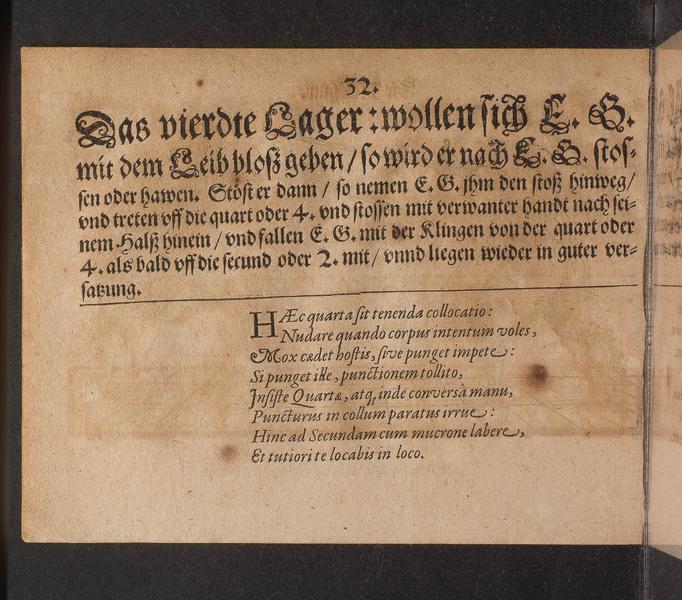 32.
Das vierdte Lager: wollen sich E. G.
mit dem Leib bloß geben / so wird er nach E. G. stos-
sen oder hawen. Stöst er dann / so nemen E. G. jhm den stoß hinweg /
vnd treten vff die quart oder 4. vnd stossen mit verwanter handt nach sei-
nem Halß hinein / vnd fallen E. G. mit der Klingen von der quart oder
4. als bald vff die secund oder 2. mit / vnnd liegen wieder in guter ver-
satzung.
HÆc quarta sit tenenda collocatio:
Nudare quando corpus intentum voles,
Mox cædet hostis, sive punget impete:
Si punget ille, punctionem tollito,
Insiste Quartæ, atq; inde conversâ manu,
Puncturus in collum paratus irrue:
Hinc ad Secundam cum mucrone labere,
Et tutiori te locabis in loco.